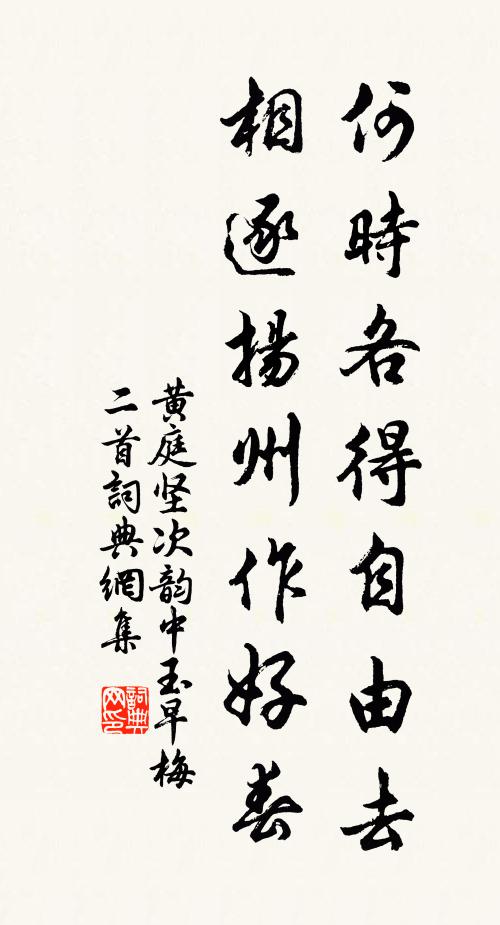 何時各得自由去
相逐揚州作好春
黄庭坚次韵中玉早梅
二首詞典網集
詞典網印